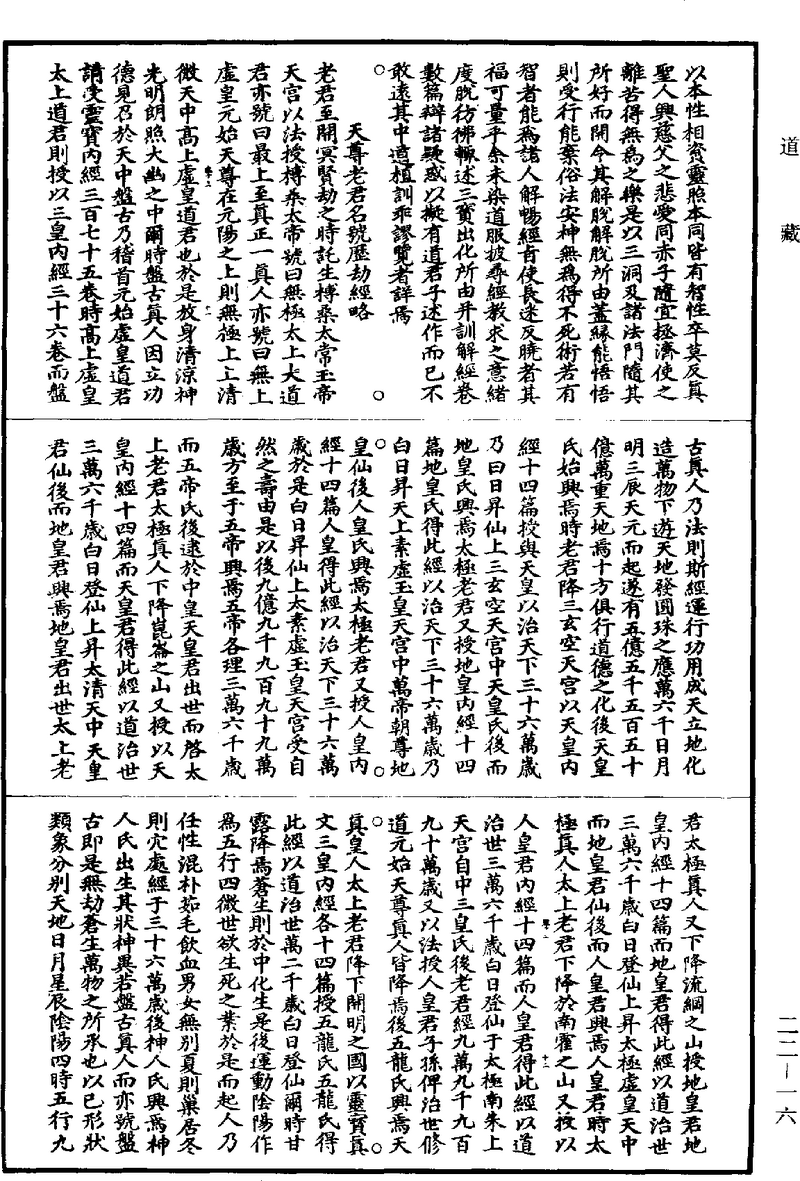 道藏
以本性相資靈照本同皆有智性卒莫反真
聖人興慈父之悲愛同赤子隨宜拯濟使之
離苦得無為之樂是以三洞及諸法門隨其
所好而開令其解脫解脫所由蓋緣能悟悟
則受行能棄俗法安神無為得不死術若有
智者能為諸人解暢經旨使長迷反曉者其
福可量乎余末染道服披尋經教求之意緒
度脫彷彿輒述三寶出化所由并訓解經卷
數篇辯諸疑惑以擬有道君子述作而已不
敢遠其中遺植訓乖謬覽者詳焉
天尊老君名號歷劫經略
老君至開冥賢劫之時託生榑桑太常玉帝
天宮以法授榑桑太帝號曰無極太上大道
君亦號曰最上至真正一真人亦號曰無上
虛皇元始天尊在元陽之上則無極上上清
微天中高上虛皇道君也於是放身清涼神
光明朗照大幽之中爾時盤古真人因立功
德見召於天中盤古乃稽首元始虛皇道君
請受靈寶內經三百七十五卷時高上虛皇
太上道君則授以三皇內經三十六卷而盤
古真人乃法則斯經運行功用成天立地化
造萬物下遊天地發圓珠之應萬六千日月
明三辰天元而起遂有五億五千五百五十
億萬重天地焉十方俱行道德之化後天皇
氏始興焉時老君降三玄空天宮以天皇內
經十四篇授與天皇以治天下三十六萬歲
乃曰日昇仙上三玄空天宮中天皇氏後而
地皇氏興焉太極老君又授地皇內經十四
篇地皇氏得此經以治天下三十六萬歲乃
白日昇天上素虛玉皇天宮中萬帝朝尊地
皇仙後人皇氏興焉太極老君又授人皇內
經十四篇人皇得此經以治天下三十六萬
歲於是白日昇仙上太素虛玉皇天宮受自
然之壽由是以後九億九千九百九十九萬
歲方至于五帝興焉五帝各理三萬六千歲
而五帝氏後逮於中皇天皇君出世而啓太
上老君太極真人下降崑崙之山又授以天
皇內經十四篇而天皇君得此經以道治世
三萬六千歲白日登仙上昇太清天中天皇
君仙後而地皇君興焉地皇君出世太上老
君太極真人又下降流綱之山授地皇君地
皇內經十四篇而地皇君得此經以道治世
三萬六千歲白日登仙上昇太極虛皇天中
而地皇君仙後而人皇君興焉人皇君時太
極真人太上老君下降於南霍之山又授以
人皇君內經十四篇而人皇君得此經以道
治世三萬六千歲白日登仙于太極南朱上
天宮自中三皇氏後老君經九萬九千九百
九十萬歲又以法授人皇君子孫俾治世修
道元始天尊真人皆降焉後五龍氏興焉天
真皇人太上老君降下開明之國以靈寶真
文三皇內經各十四篇授五龍氏五龍氏得
此經以道治世萬二千歲白日登仙爾時甘
露降焉蒼生則於中化生是後運動陰陽作
為五行四微世欲生死之業於是而起人乃
任性混朴茹毛飲血男女無別夏則巢居冬
則穴處經于三十六萬歲後神人氏興焉神
人氏出生其狀神異若盤古真人而亦號盤
古即是無劫蒼生萬物之所承也以已形狀
類象分別天地日月星辰陰陽四時五行九
二二—一六